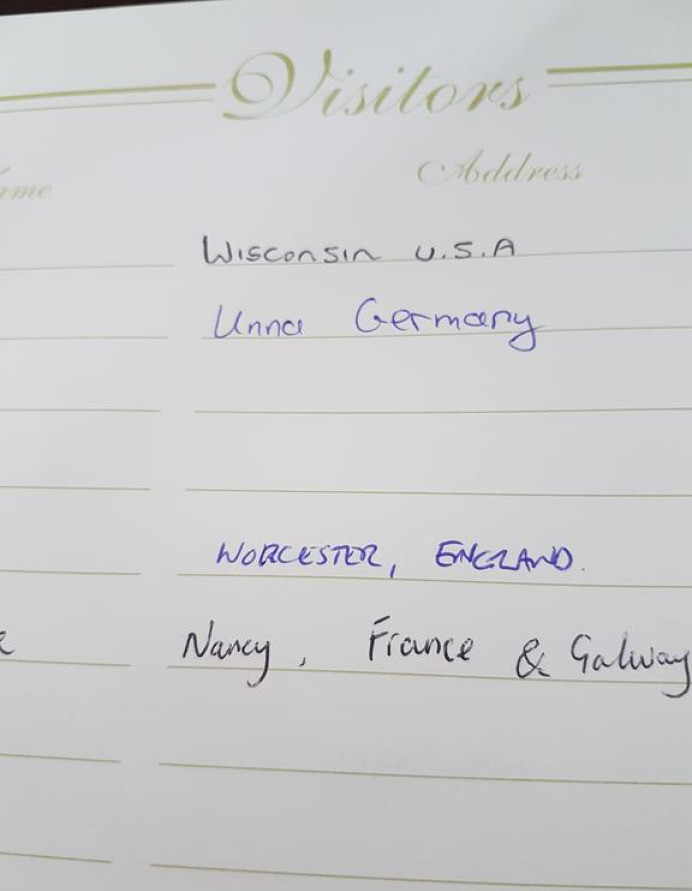 Visitors
Address
Wisconsin U.S.A
Unna Germany
WORCESTER, ENGLAND.
Nancy, France & Galway